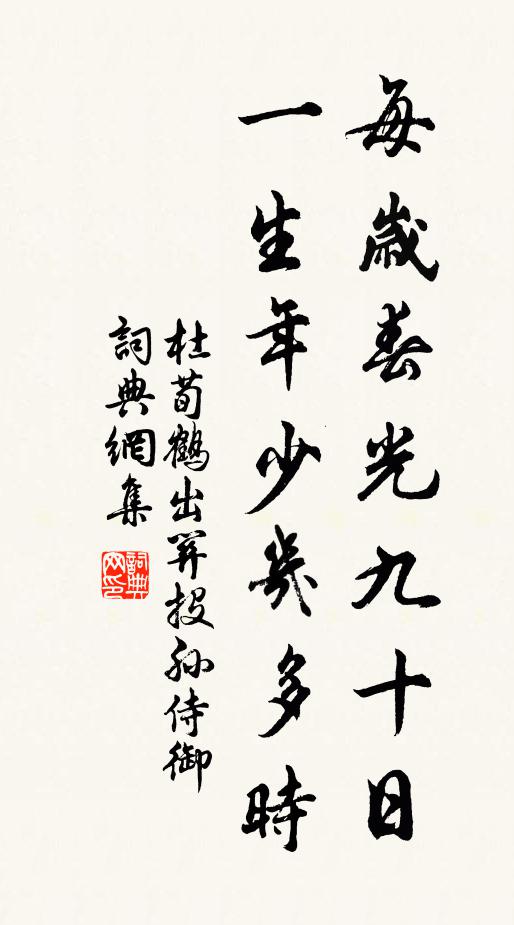 每歲春光九十日
一生年少幾多時
杜荀鶴出關投孫侍御
詞典網集
詞典
网印